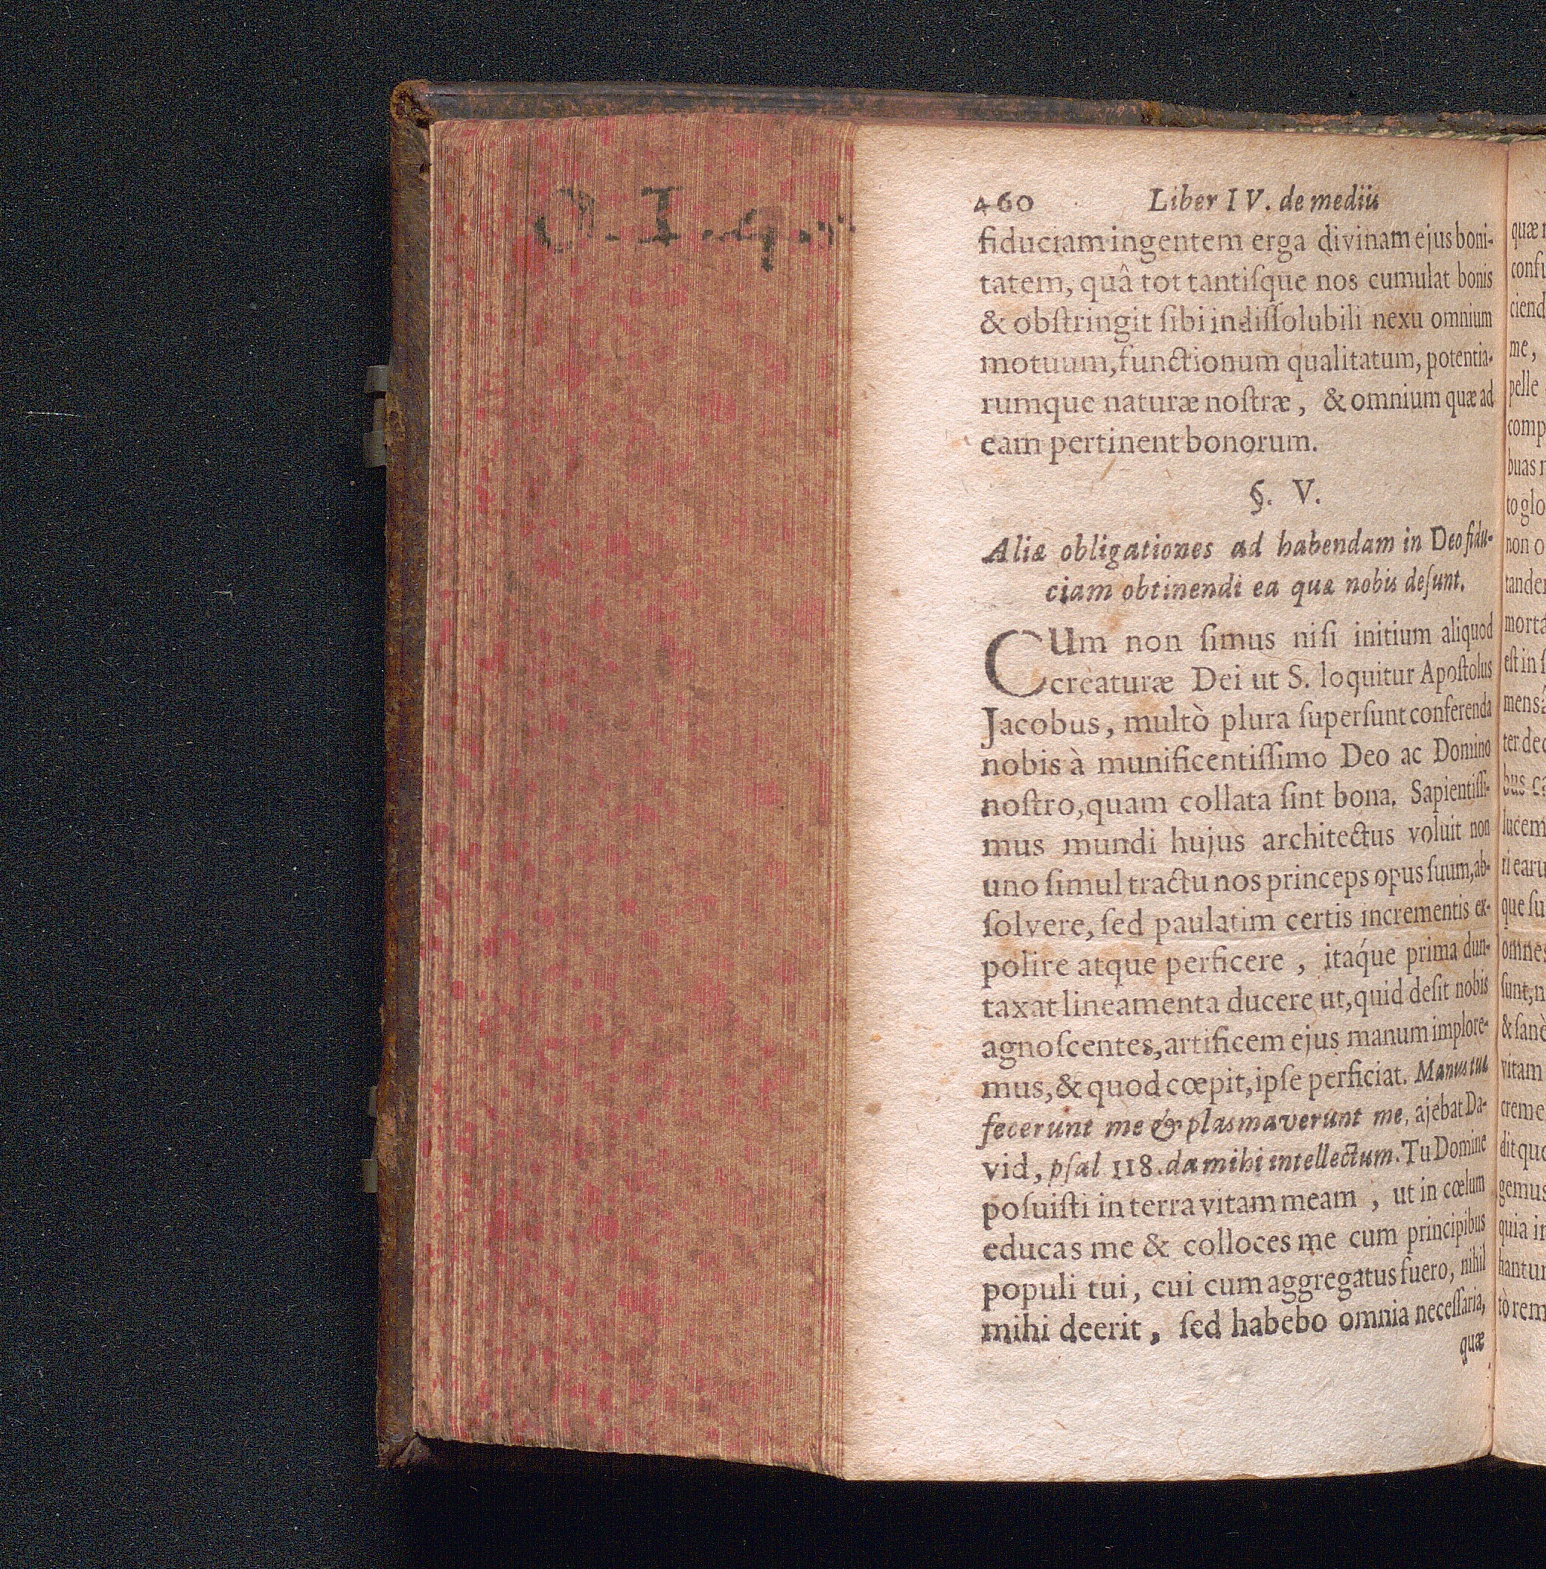 O. I. q.
460 Liber IV. de mediis
fiduciam ingentem erga divinam ejus boni-
tatem, quâ tot tantiſque nos cumulat bonis
& obſtringit ſibi indiſſolubili nexu omnium
motuum, functionum qualitatum, potentia-
rumque naturæ noſtræ, & omnium quæ ad
eam pertinent bonorum.
§. V.
Aliæ obligationes ad habendam in Deo fidu-
ciam obtinendi ea quæ nobis deſunt.
CUm non ſimus niſi initium aliquod
creaturæ Dei ut S. loquitur Apoſtolus
Jacobus, multò plura ſuperſunt conferenda
nobis à munificentiſſimo Deo ac Domino
noſtro, quam collata ſint bona. Sapientiſſi-
mus mundi hujus architectus voluit non
uno ſimul tractu nos princeps opus ſuum, ab-
ſolvere, ſed paulatim certis incrementis ex-
polire atque perficere, itaq́ue prima dun-
taxat lineamenta ducere ut, quid deſit nobis
agnoſcentes, artificem ejus manum implore-
mus, & quod cœpit, ipſe perficiat. Manus tuæ
fecerunt me & plasmaverunt me, ajebat Da-
vid, pſal 118. da mihi intellectum. Tu Domine
poſuiſti in terra vitam meam, ut in cœlum
educas me & colloces me cum principibus
populi tui, cui cum aggregatus fuero, nihil
mihi deerit, ſed habebo omnia neceſſaria,
quæ